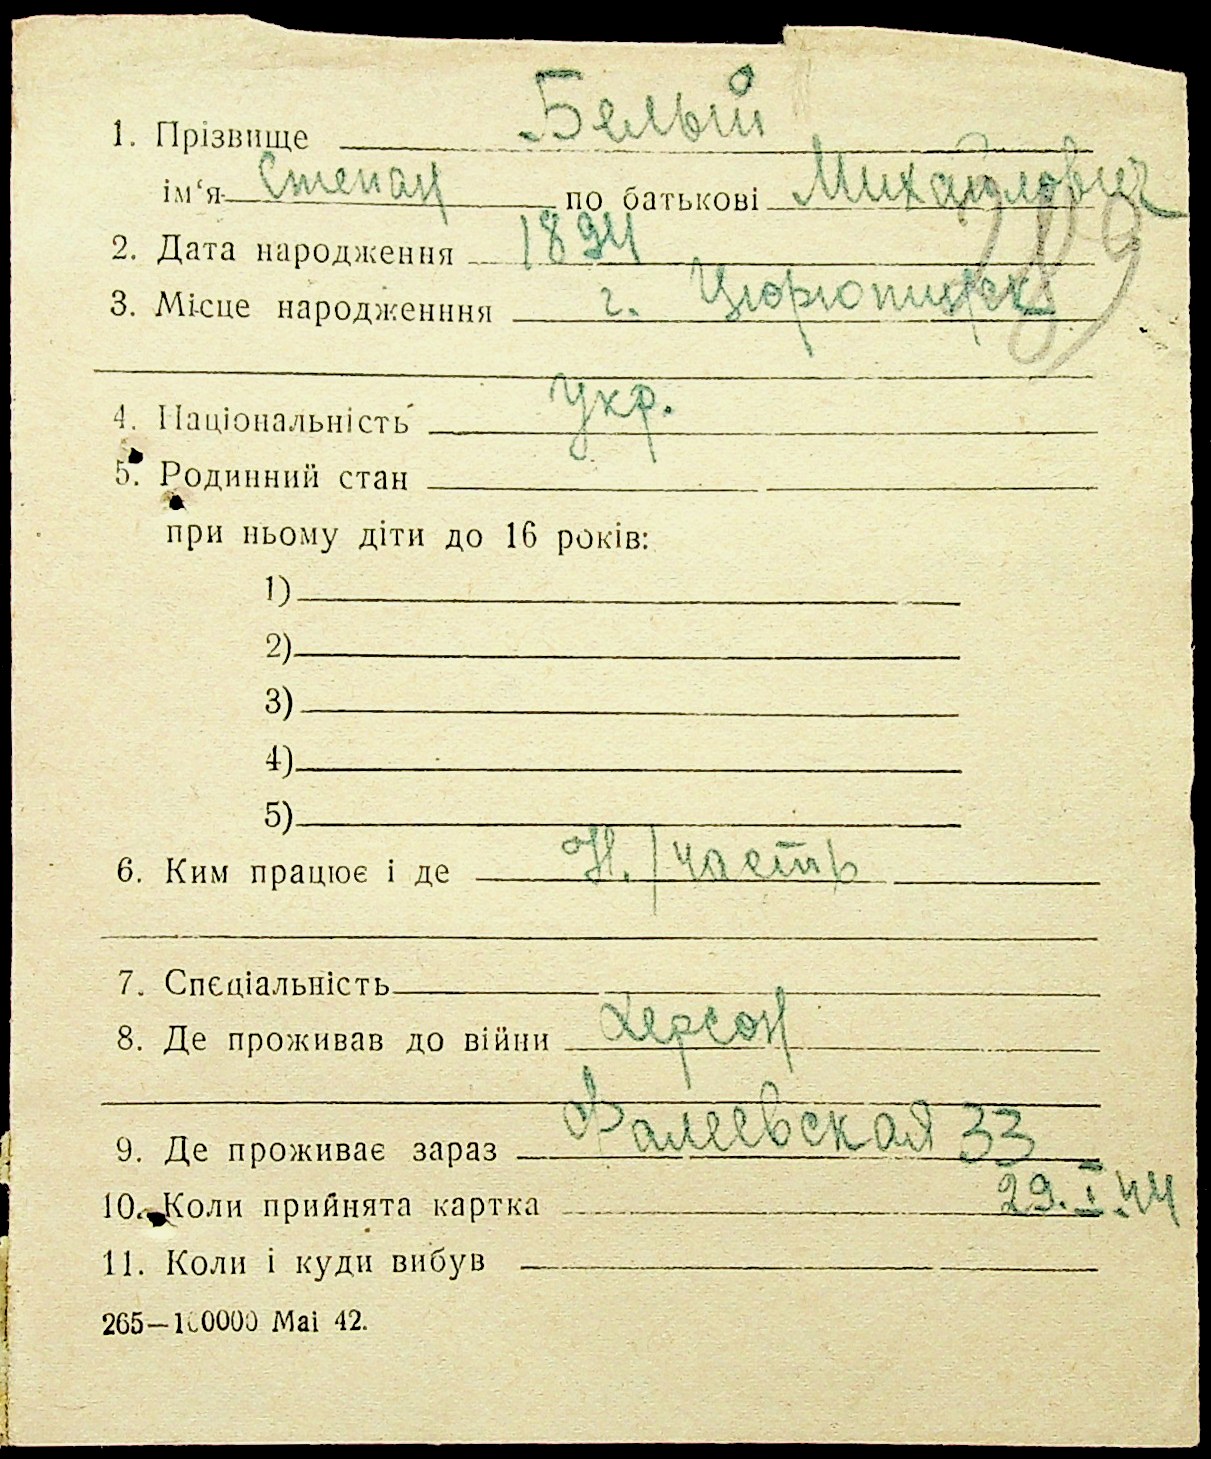 1. Прізвище Белый
ім‘я Степан по батькові Михайлович
2. Дата народження 1894
3. Місце народженння г. Цюрюпинск
289
4. Національність укр.
5. Родинний стан
при ньому діти до 16 років:
1)
2)
3)
4)
5)
6. Ким працює і де Н. / часть
7. Спєціальність
8. Де проживав до війни Херсон
9. Де проживає зараз Фалеевская 33
10. Коли прийнята картка 29.I.44
11. Коли і куди вибув
265—100000 Mai 42.